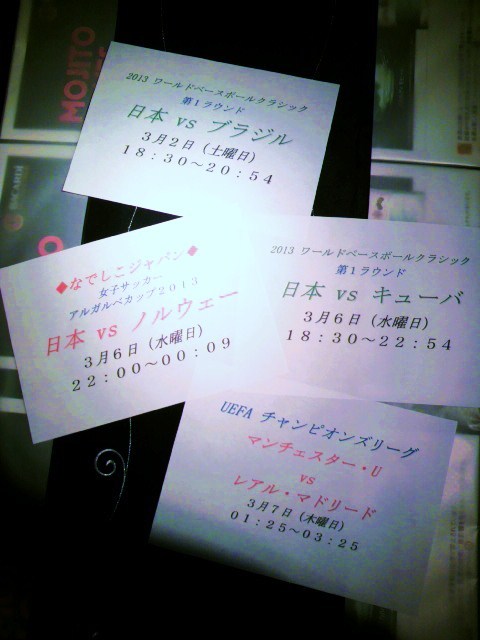 MOJITO
BACARDI
2013 ワールドベースボールクラシック
第1ラウンド
日本 vs ブラジル
3月2日（土曜日）
18：30～20：54
◆なでしこジャパン◆
女子サッカー
アルガルベカップ2013
日本 vs ノルウェー
3月6日（水曜日）
22：00～00：09
2013 ワールドベースボールクラシック
第1ラウンド
日本 vs キューバ
3月6日（水曜日）
18：30～22：54
UEFA チャンピオンズリーグ
マンチェスター・U
vs
レアル・マドリード
3月7日（木曜日）
01：25～03：25